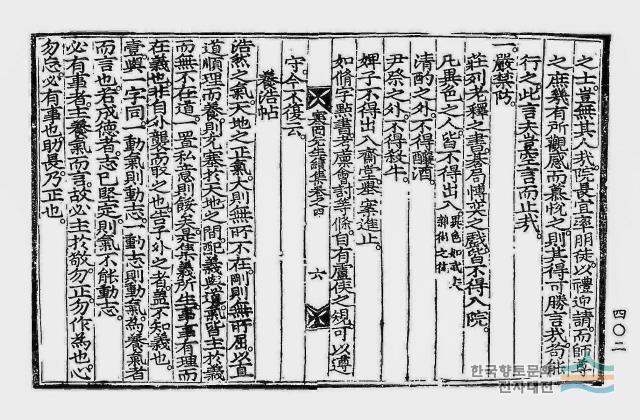 之士。豈無其人哉。院長宜率朋徒以禮迎請。而師尊
之。庶幾有所觀感而慕悅之。則其得可勝言哉。苟能
行之。此言夫豈空言而止哉。
一。嚴禁防。
莊列老釋之書。棊局博奕之戲。皆不得入院。
凡異色之人。皆不得出入。異色如戎人雜術之徒
淸酌之外。不得釀酒。
尹祭之外。不得殺牛。
婢子不得出入齋堂與寀進止。
如修字點書考廩會討等條。自有廬俠之規。可以遵
守。今不復云。
養浩帖
浩然之氣。天地之正氣。大則無所不在。剛則無所屈。以直
道順理而養。則充塞於天地之間。配義與道。氣皆主於義
而無不在道。一置私意則餒矣。是集義所生。事事有理而
在義也。非自外襲而取之也。告子外之者。蓋不知義也。
壹與一字同。一動氣則動志。一動志則動氣。爲養氣者
而言也。若成德者。志已堅定。則氣不能動志。
必有事者。主養氣而言。故必主於敬。勿正。勿作爲也。心
勿忘。必有事也。助長。乃正也。
六
四〇二
한국향토문화
전자대전